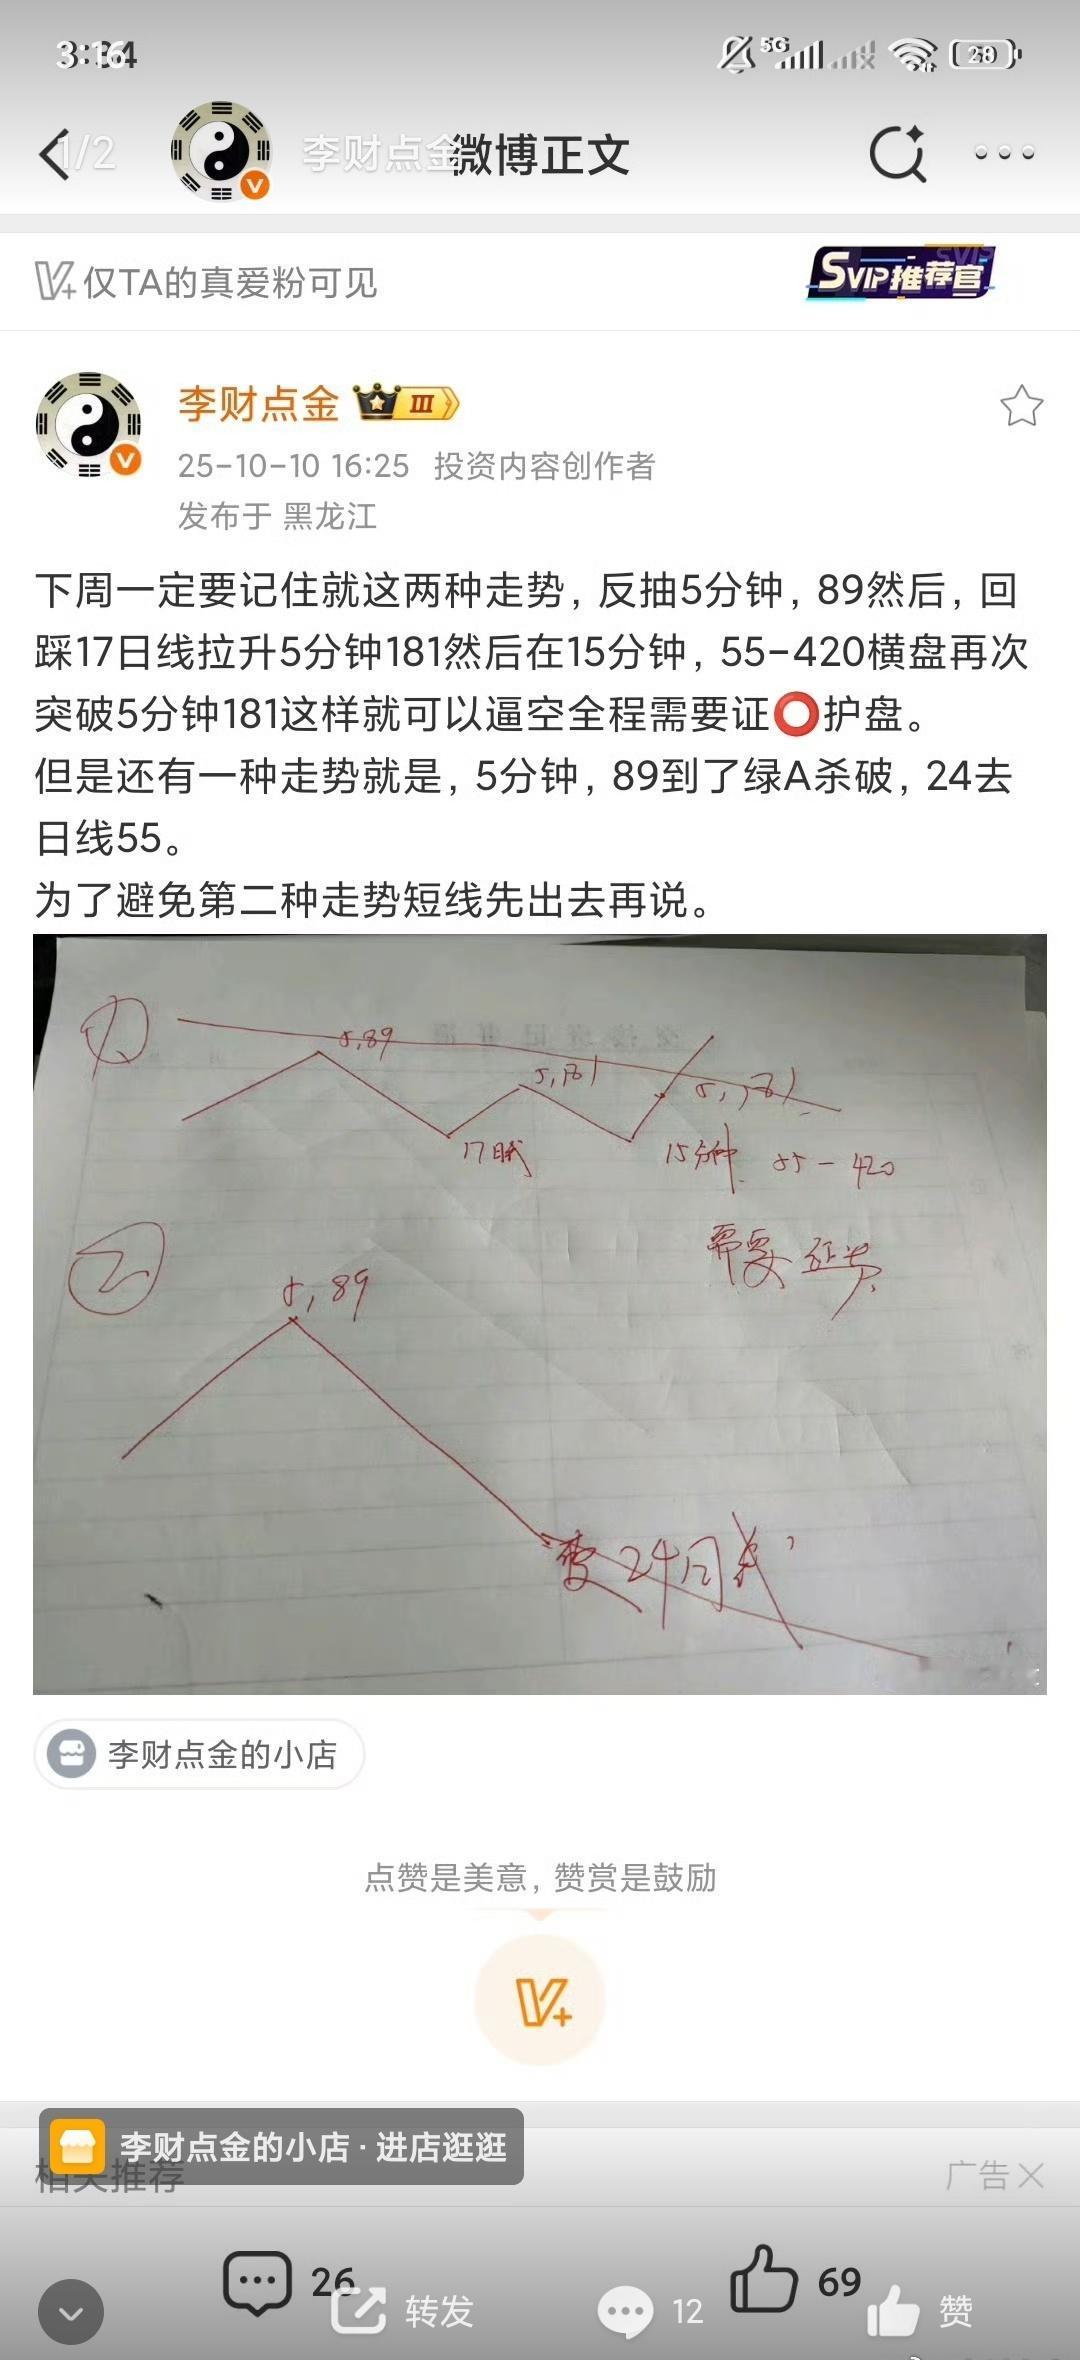 1/2
李财点金
微博正文
仅TA的真爱粉可见
SVIP推荐官
李财点金
III
25-10-10 16:25 投资内容创作者
发布于 黑龙江
下周一定要记住就这两种走势，反抽5分钟，89然后，回
踩17日线拉升5分钟181然后在15分钟，55-420横盘再次
突破5分钟181这样就可以逼空全程需要证⭕护盘。
但是还有一种走势就是，5分钟，89到了绿A杀破，24去
日线55。
为了避免第二种走势短线先出去再说。
①
5,89
5,181
5,181
17日线
15分钟 55-420
需要证券
②
5,89
24周线
李财点金的小店
点赞是美意，赞赏是鼓励
V+
李财点金的小店·进店逛逛
相关推荐
广告
26
69
转发
12
赞